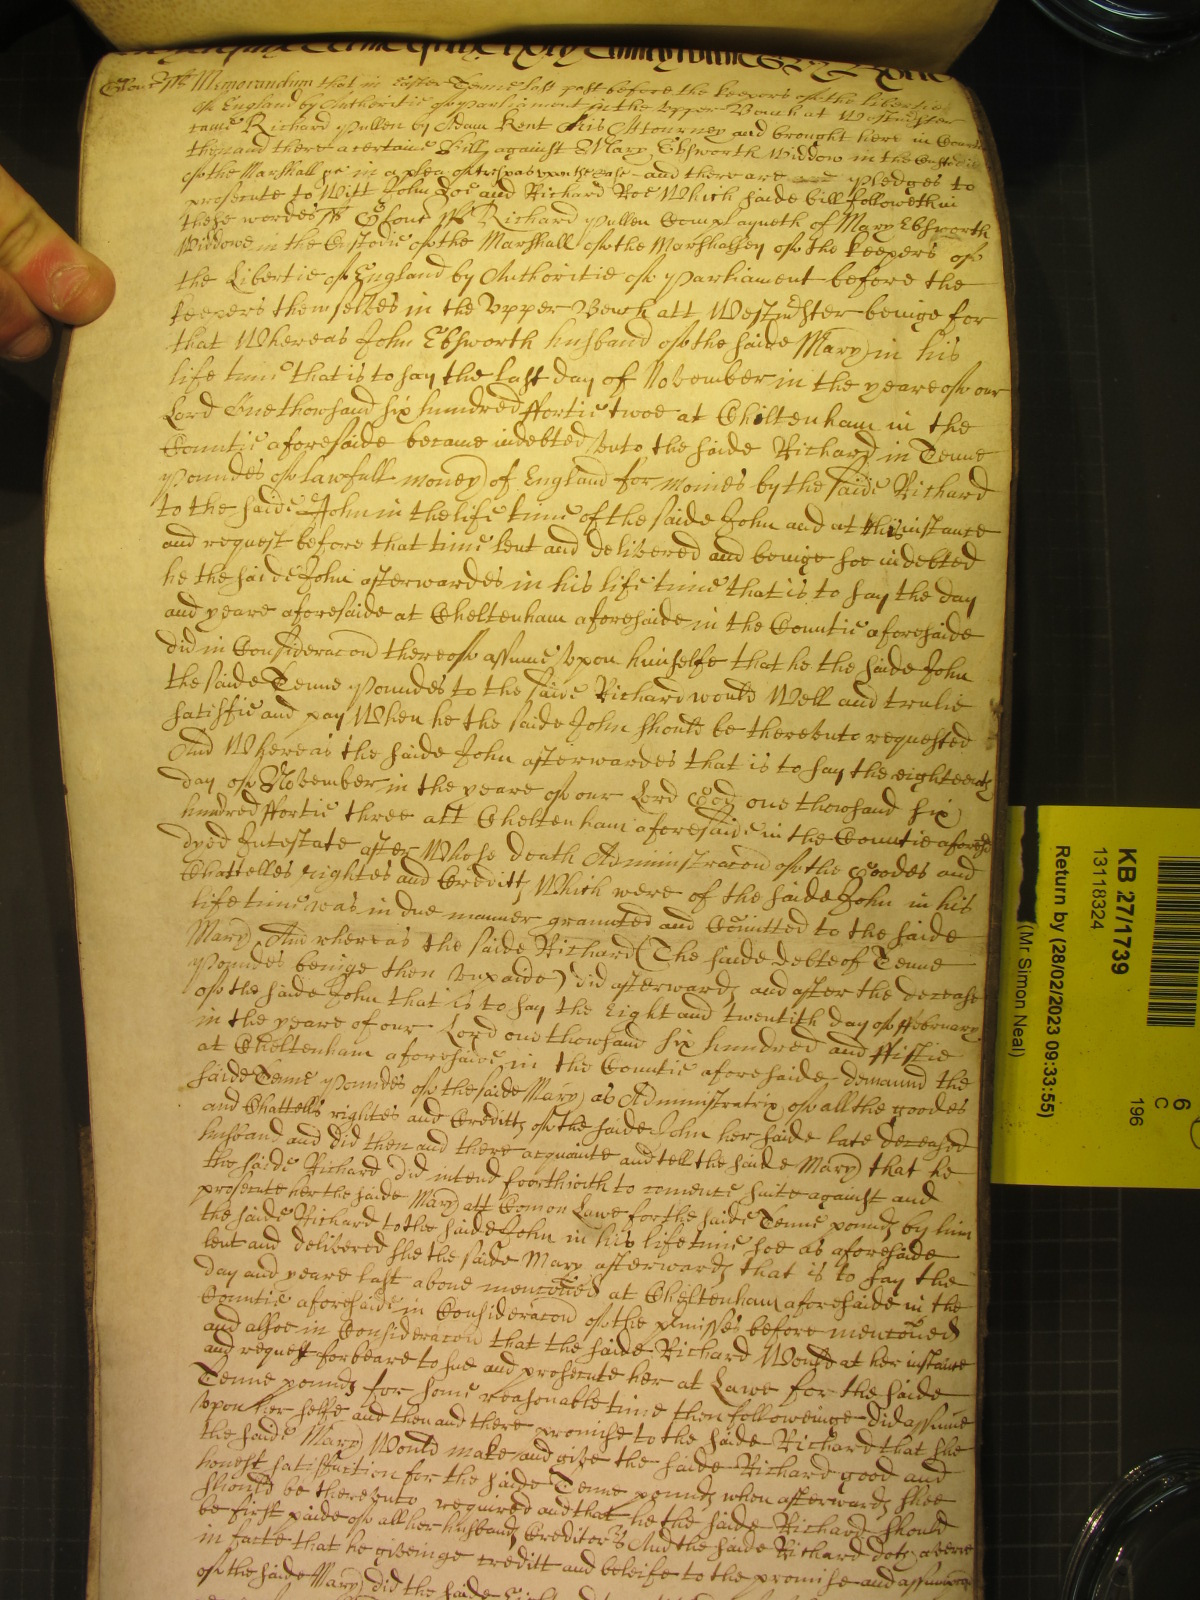 Glouc ss Memorandum that in Easter Terme last past before the keepers of the liberties
of England by Authoritie of Parliament in the Upper Bench at Westminster
came Richard Pullen by Adam Kent his Attourney and brought here in Court
then and there a certaine Bill against Mary Ebsworth Widdow in the Custodie
of the Marshall &c in a plea of trespas upon the case and there are pledges to
prosecute to Witt John Doe and Richard Roe Which saide bill followeth in
these wordes ss Glouc ss Richard Pullen Complayneth of Mary Ebsworth
Widdowe in the Custodie of the Marshall of the Marshalsey of the keepers of
the Libertie of England by Authoritie of Parliament before the
keepers themselves in the Upper Bench att Westminster beinge for
that Whereas John Ebsworth husband of the saide Mary in his
life time that is to say the last day of November in the yeare of our
Lord One thowsand six hundred ffortie twoe at Cheltenham in the
Countie aforesaide became indebted unto the saide Richard in Tenne
Poundes of lawfull money of England for monies by the saide Richard
to the saide John in the life time of the saide John and at his instance
and request before that time lent and delivered and beinge soe indebted
he the saide John afterwardes in his life time that is to say the day
and yeare aforesaide at Cheltenham aforesaide in the Countie aforesaide
did in Consideracon thereof assume upon himselfe that he the saide John
the saide Tenne Poundes to the saide Richard would Well and trulie
satisfie and pay When he the saide John should be thereunto requested
And Whereas the saide John afterwardes that is to say the eighteenth
day of November in the yeare of our Lord God one thowsand six
hundred ffortie three att Cheltenham aforesaide in the Countie aforesd
dyed Intestate after Whose death Administracon of the Goodes and
Chattelles rightes and Creditts Which were of the saide John in his
life time was in due manner graunted and Comitted to the saide
Mary And whereas the saide Richard (The saide debte of Tenne
Poundes beinge then unpaide) did afterwards and after the decease
of the saide John that is to say the Eight and twentith day of ffebruary
in the yeare of our Lord one thowsand six hundred and ffiftie
at Cheltenham aforesaide in the Countie aforesaide demaund the
saide Tenne Poundes of the saide Mary as Administratrix of all the goodes
and Chattells rightes and Creditts of the saide John her saide late deceased
husband and did then and there acquainte and tell the saide Mary that he
the saide Richard did intend foorthwith to comence suite against and
prosecute her the saide Mary att Comon Lawe for the saide Tenne pounds by him
the saide Richard to the saide John in his life time soe as aforesaide
lent and delivered she the saide Mary afterwards that is to say the
day and yeare last above menconed at Cheltenham aforesaide in the
Countie aforesaide in Consideracon of the premisses before mencoued
and alsoe in Consideracon that the saide Richard Would at her instance
and request forbeare to sue and prosecute her at Lawe for the saide
Tenne pounds for some reasonable time then followeinge did assume
upon her selfe and then and there promise to the saide Richard that she
the saide Mary Would make and give the saide Richard good and
honest satisfaction for the saide Tenne pounds when afterwards shee
should be thereunto required and that he the saide Richard should
be first paide of all her husbands Creditors And the saide Richard doth averre
in facte that he giveinge creditt and beleife to the promise and assumpcon
of the saide Mary did the saide
KB 27/1739
13118324
Return by (28/02/2023 09:33:55)
(Mr Simon Neal)
6
C
196